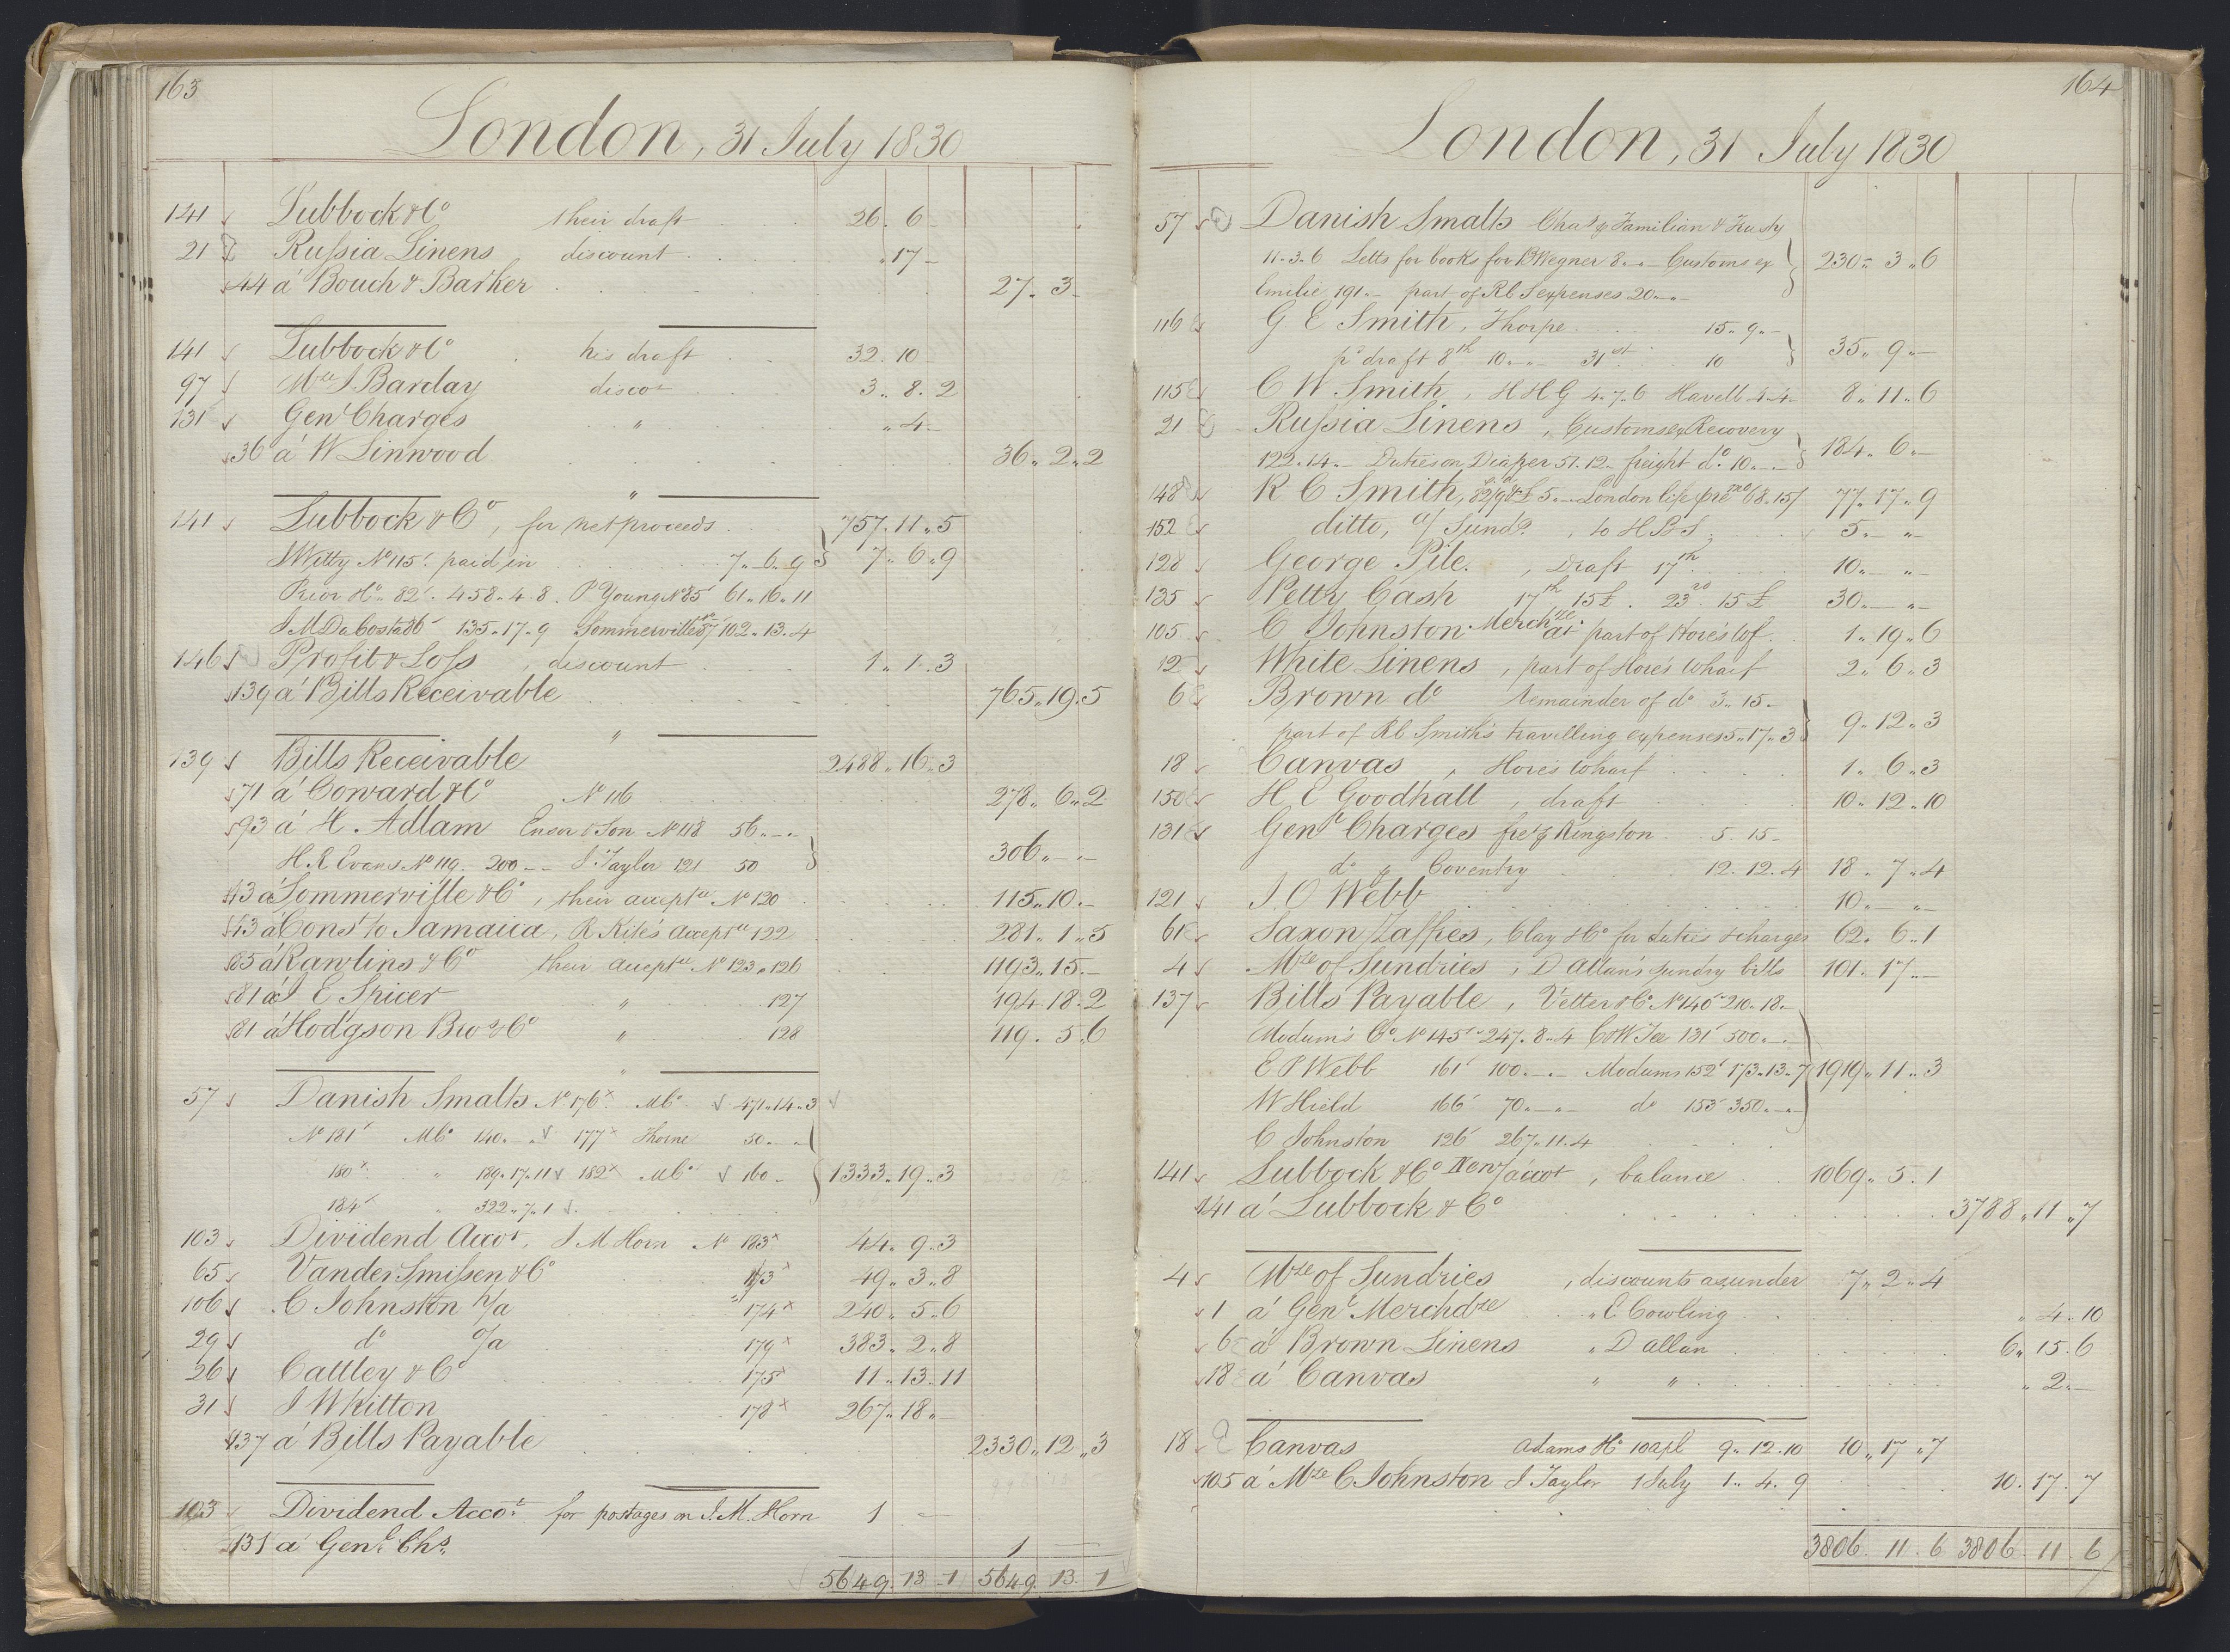 163
London, 31 July 1830
141 Lubbock & Co their draft 26. 6 -
21 Russia Linens discount " 17 -
44 á Bouch & Barker 27. 3 -
141 Lubbock & Co his draft 32. 10 -
97 Mze J. Barclay discot 3. 8. 2
131 Genl Charges " " 4 -
36 á W Linwood 36. 2. 2
"
141 Lubbock & Co, for net proceeds 757. 11. 5
J Witty No 115. paid in 7. 6. 9 7. 6. 9
Prior & Co 82. 458. 4. 8. P Young No 85 61. 16. 11
J M DaCosta 86 135. 17. 9 Sommerville No 87 102. 13. 4
146 Profit & Loss, discount 1. 1. 3
139 á Bills Receivable 765. 19. 5
"
139 Bills Receivable 2488. 16. 3
71 á Coward & Co No 116 278. 6. 2
93 á H. Adlam Ensor & Son No 118 56. - -
H. E Evans No 119. 200 - - J. Taylor 121 50 306. - -
43 á Sommerville & Co, their accepta No 120 115. 10. -
113 á Cons to Jamaica, R Kite's accepta 122 281. 1. 5
85 á Rawlins & Co their accepta No 123 " 126 1193. 15. -
81 á J E Spicer " 127 194. 18. 2
81 á Hodgson Bro & Co " 128 119. 5. 6
"
57 Danish Smalts No 176 x MCo 471. 14. 3
No 181 MCo 140. " 177 x Thorne 50. - -
180 x " 189. 17. 11 182 x MCo 160 - 1333. 19. 3
184 " 322. 7. 1
103 Dividend Accot, J M Horn No 183 x 44. 9. 3
65 Vander Smissen & Co 173 x 49. 3. 8
106 C Johnston n/a 174 x 240. 5. 6
29 do o/a 179 x 383. 2. 8
26 Cattley & Co 175 x 11. 13. 11
31 J Whitton 178 x 267. 18. -
137 á Bills Payable 2330. 12. 3
103 Dividend Accot for postages on J. M. Horn 1 -
131 á Genl Chs 1 -
5649. 13. 1 5649. 13. 1
164
London, 31 July 1830
57 Danish Smalts Familian &
11. 3. 6 Letts for books for B Wegner 8. - - Customs ex
Emelie 191. - part of R C S expenses 20. - - 230. 3. 6
116 G E Smith, Thorpe 15. 9. -
pr draft 8th 10. - - 31st 10 35. 9. -
115 C W Smith, H H G 4. 7. 6 Havell 4. 4 - 8. 11. 6
21 Russia Linens, Customs ex Recovery
122. 14. - Duties on Diaper 51. 12 - freight do. 10. - - 184. 6. -
148 R C Smith, 5. - - London life 68. 15/ 77. 17. 9
152 ditto, a/ Sunds, to H B S 5. - -
128 George Pile, Draft 17th 10. - -
135 Petty Cash 17th 15£. 23rd. 15£ 30. - -
105 C Johnston Merchdze at part of Hore's Wf. 1. 19. 6
12 White Linens, part of Hore's Wharf 2. 6. 3
6 Brown do remainder of do 3. 15 -
part of R C Smith's travelling expenses 5. 17. 3 9. 12. 3
18 Canvas, Hore's Wharf 1. 6. 3
150 H E Goodhall, draft 10. 12. 10
131 Genl Charges fret p Kingston 5. 15 -
do p Coventry 12. 12. 4 18. 7. 4
121 J. O Webb 10. - -
61 Saxon Zaffres, Clay & Co for duties & charges 62. 6. 1
4 Mze of Sundries, D Allan's sundry bills 101. 17. -
137 Bills Payable, Vetter & Co No 140 210. 18 -
Modum's Co No 145 247. 8. 4 C & W Tea 131 500. - -
E P Webb 161 100. - - Modums 152 173. 13. 7 1919. 11. 3
W Hield 166 70. - - do 153 350. - -
C Johnston 126 267. 11. 4
141 Lubbock & Co New/accot, balance 1069. 5. 1
141 á Lubbock & Co 3788. 11. 7
4 Mze of Sundries, discounts as under 7. 2. 4
1 á Genl Merchdze " E Cowling " 4. 10
6 á Brown Linens " D Allan 6. 15. 6
18 á Canvas " " " 2. -
18 Canvas Adams & Co 10 apl 9. 12. 10 10. 17. 7
105 á Mze C Johnston J Taylor 1 July 1. 4. 9 10. 17. 7
3806. 11. 6 3806. 11. 6